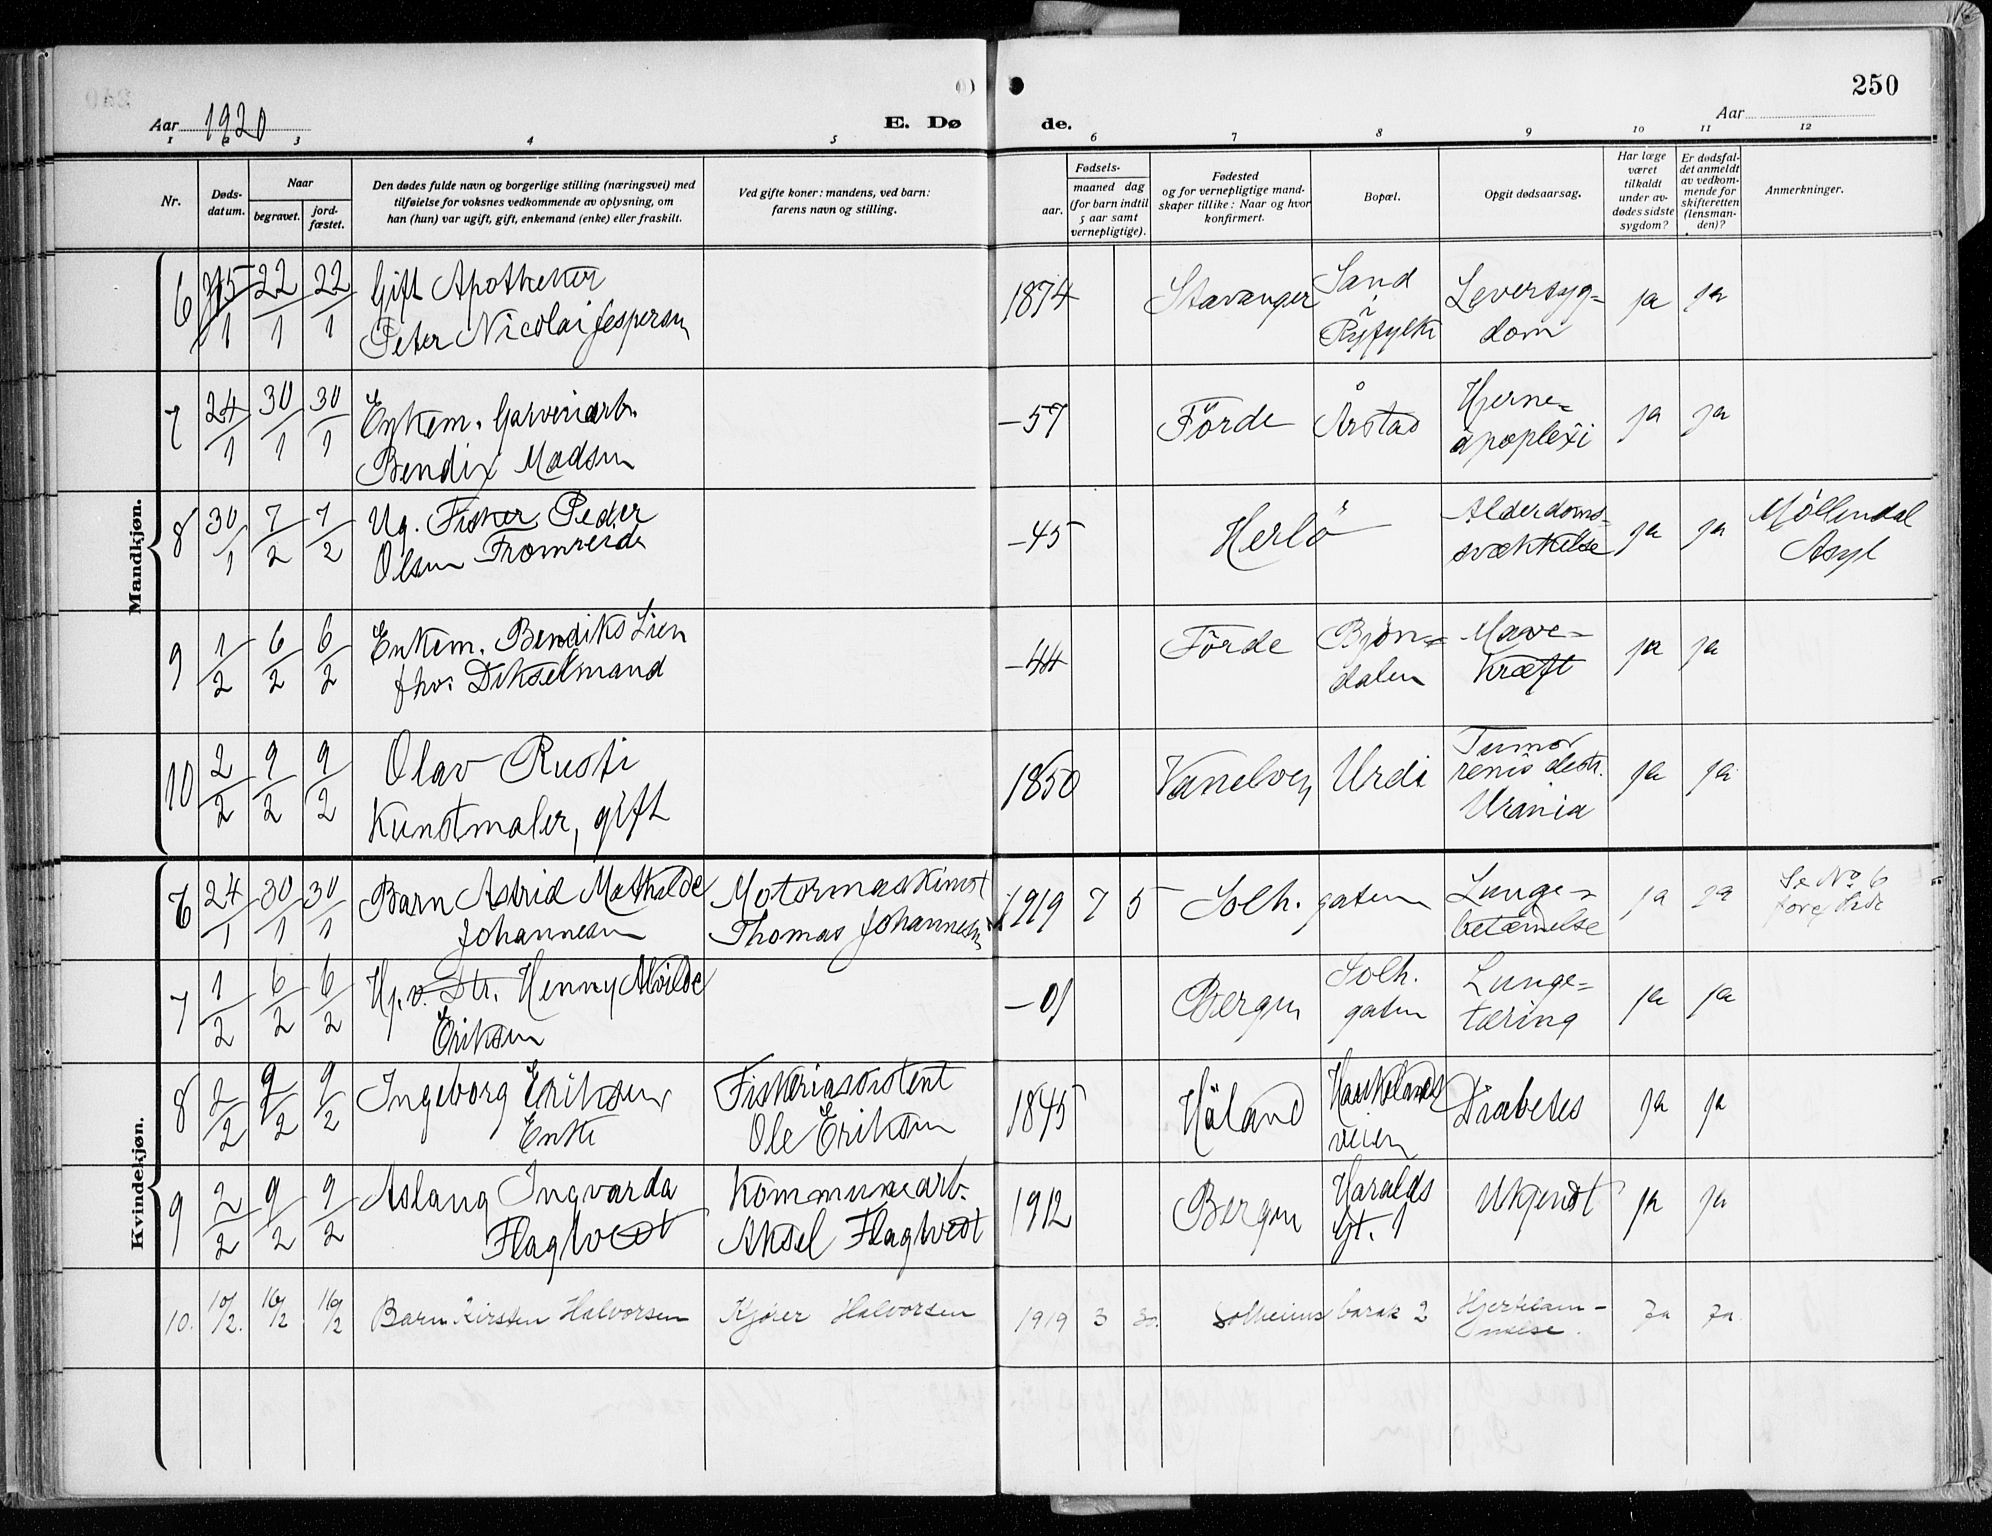 250
Aar 1920
E. Dø
de.
Aar
1 2 3 4 5 6 7 8 9 10 11 12
Nr.
Døds-
datum.
Naar
begravet.
jord-
fæstet.
Den dødes fulde navn og borgerlige stilling (næringsvei) med
tilføielse for voksnes vedkommende av oplysning, om
han (hun) var ugift, gift, enkemand (enke) eller fraskilt.
Ved gifte koner: mandens, ved barn:
farens navn og stilling.
Fødsels-
aar.
maaned dag
(for barn indtil
5 aar samt
vernepligtige).
Fødested
og for vernepligtige mand-
skaper tillike: Naar og hvor
konfirmert.
Bopæl.
Opgit dødsaarsag.
Har læge
været
tilkaldt
under av-
dødes sidste
sygdom?
Er dødsfal-
det anmeldt
av vedkom-
mende for
skifteretten
(lensman-
den)?
Anmerkninger.
Mandkjøn.
6 15/1 22/1 22/1 Gift Apotheker 1874 Stavanger Sand Leversyg- ja ja
Peter Nicolai Jespersen i Ryfylke dom
7 24/1 30/1 30/1 Enkem. Garveriarb. -57 Förde Årstad Hjerne- ja ja
Bendix Madsen apoplexi
8 30/1 7/2 7/2 Ug. Fisker Peder -45 Herlö Alderdoms- ja ja Möllendal
Olsen Fromreide svækkelse Asyl
9 1/2 6/2 6/2 Enkem. Bendiks Lien -44 Förde Bjön- Mave- ja ja
fhv. Dikselmand dalen kræft
10 2/2 9/2 9/2 Olav Rusti 1850 Vanelven Urdi Tumor ja ja
Kunstmaler, gift renis destr.
Urania
Kvindekjøn.
6 24/1 30/1 30/1 Barn Astrid Mathilde Motormaskinist 1919 7 5 Solh. gaten Lunge- ja ja Se No 6
Johannesen Thomas Johannesen betændelse
7 1/2 6/2 6/2 Hj.v. Dtr. Henny Alvilde -01 Bergen Solh. Lunge- ja ja
Eriksen gaten tæring
8 2/2 9/2 9/2 Ingeborg Eriksen Fiskeriassistent 1845 Håland Haukelands Diabetes ja ja
Enke Ole Eriksen veien
9 2/2 9/2 9/2 Aslaug Ingvarda Kommunearb. 1912 Bergen Haralds Ukjendt ja ja
Flagtvedt Aksel Flagtvedt gt. 1
10. 10/2. 16/2 16/2 Barn Kirsten Halvorsen Kjører Halvorsen 1919 3 30. Solheims barak 2 Hjertelam- Ja Ja.
melse.